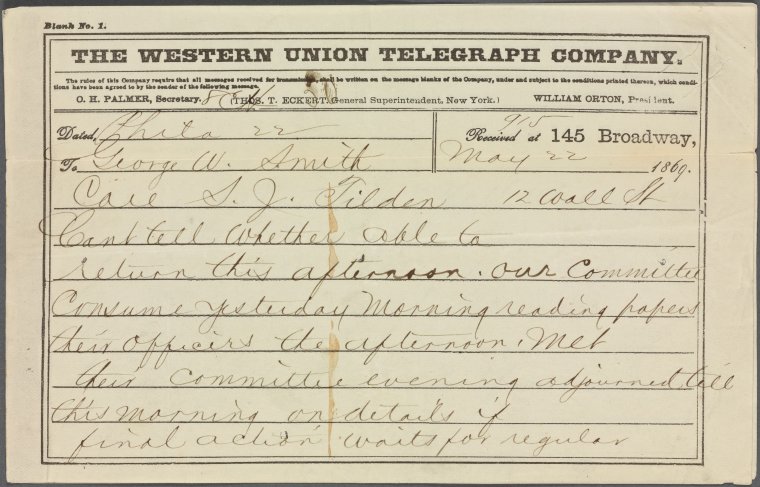 Blank No. 1.
THE WESTERN UNION TELEGRAPH COMPANY.
The rules of this Company require that all messages received for transmission, shall be written on the message blanks of the Company, under and subject to the conditions printed thereon, which condi-
tions have been agreed to by the sender of the following message.
O. H. PALMER, Secretary. (THOS. T. ECKERT, General Superintendent, New York.) WILLIAM ORTON, President.
Dated, Phila 22 Received at 145 Broadway,
915
To George W. Smith May 22 1869.
Care S. J. Tilden 12 Wall St
Cant tell whether able to
return this afternoon. our Committee
Consume yesterday Morning reading papers
their officers the afternoon. Met
their committee evening adjourned till
this morning on details if
final action waits for regular